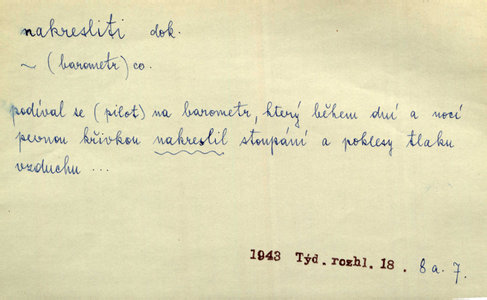 nakresliti dok.
~ (barometr) co.
podíval se (pilot) na barometr, který během dní a nocí
pevnou křivkou nakreslil stoupání a poklesy tlaku
vzduchu ...
1943 Týd. rozhl. 18. 8 a. 7.